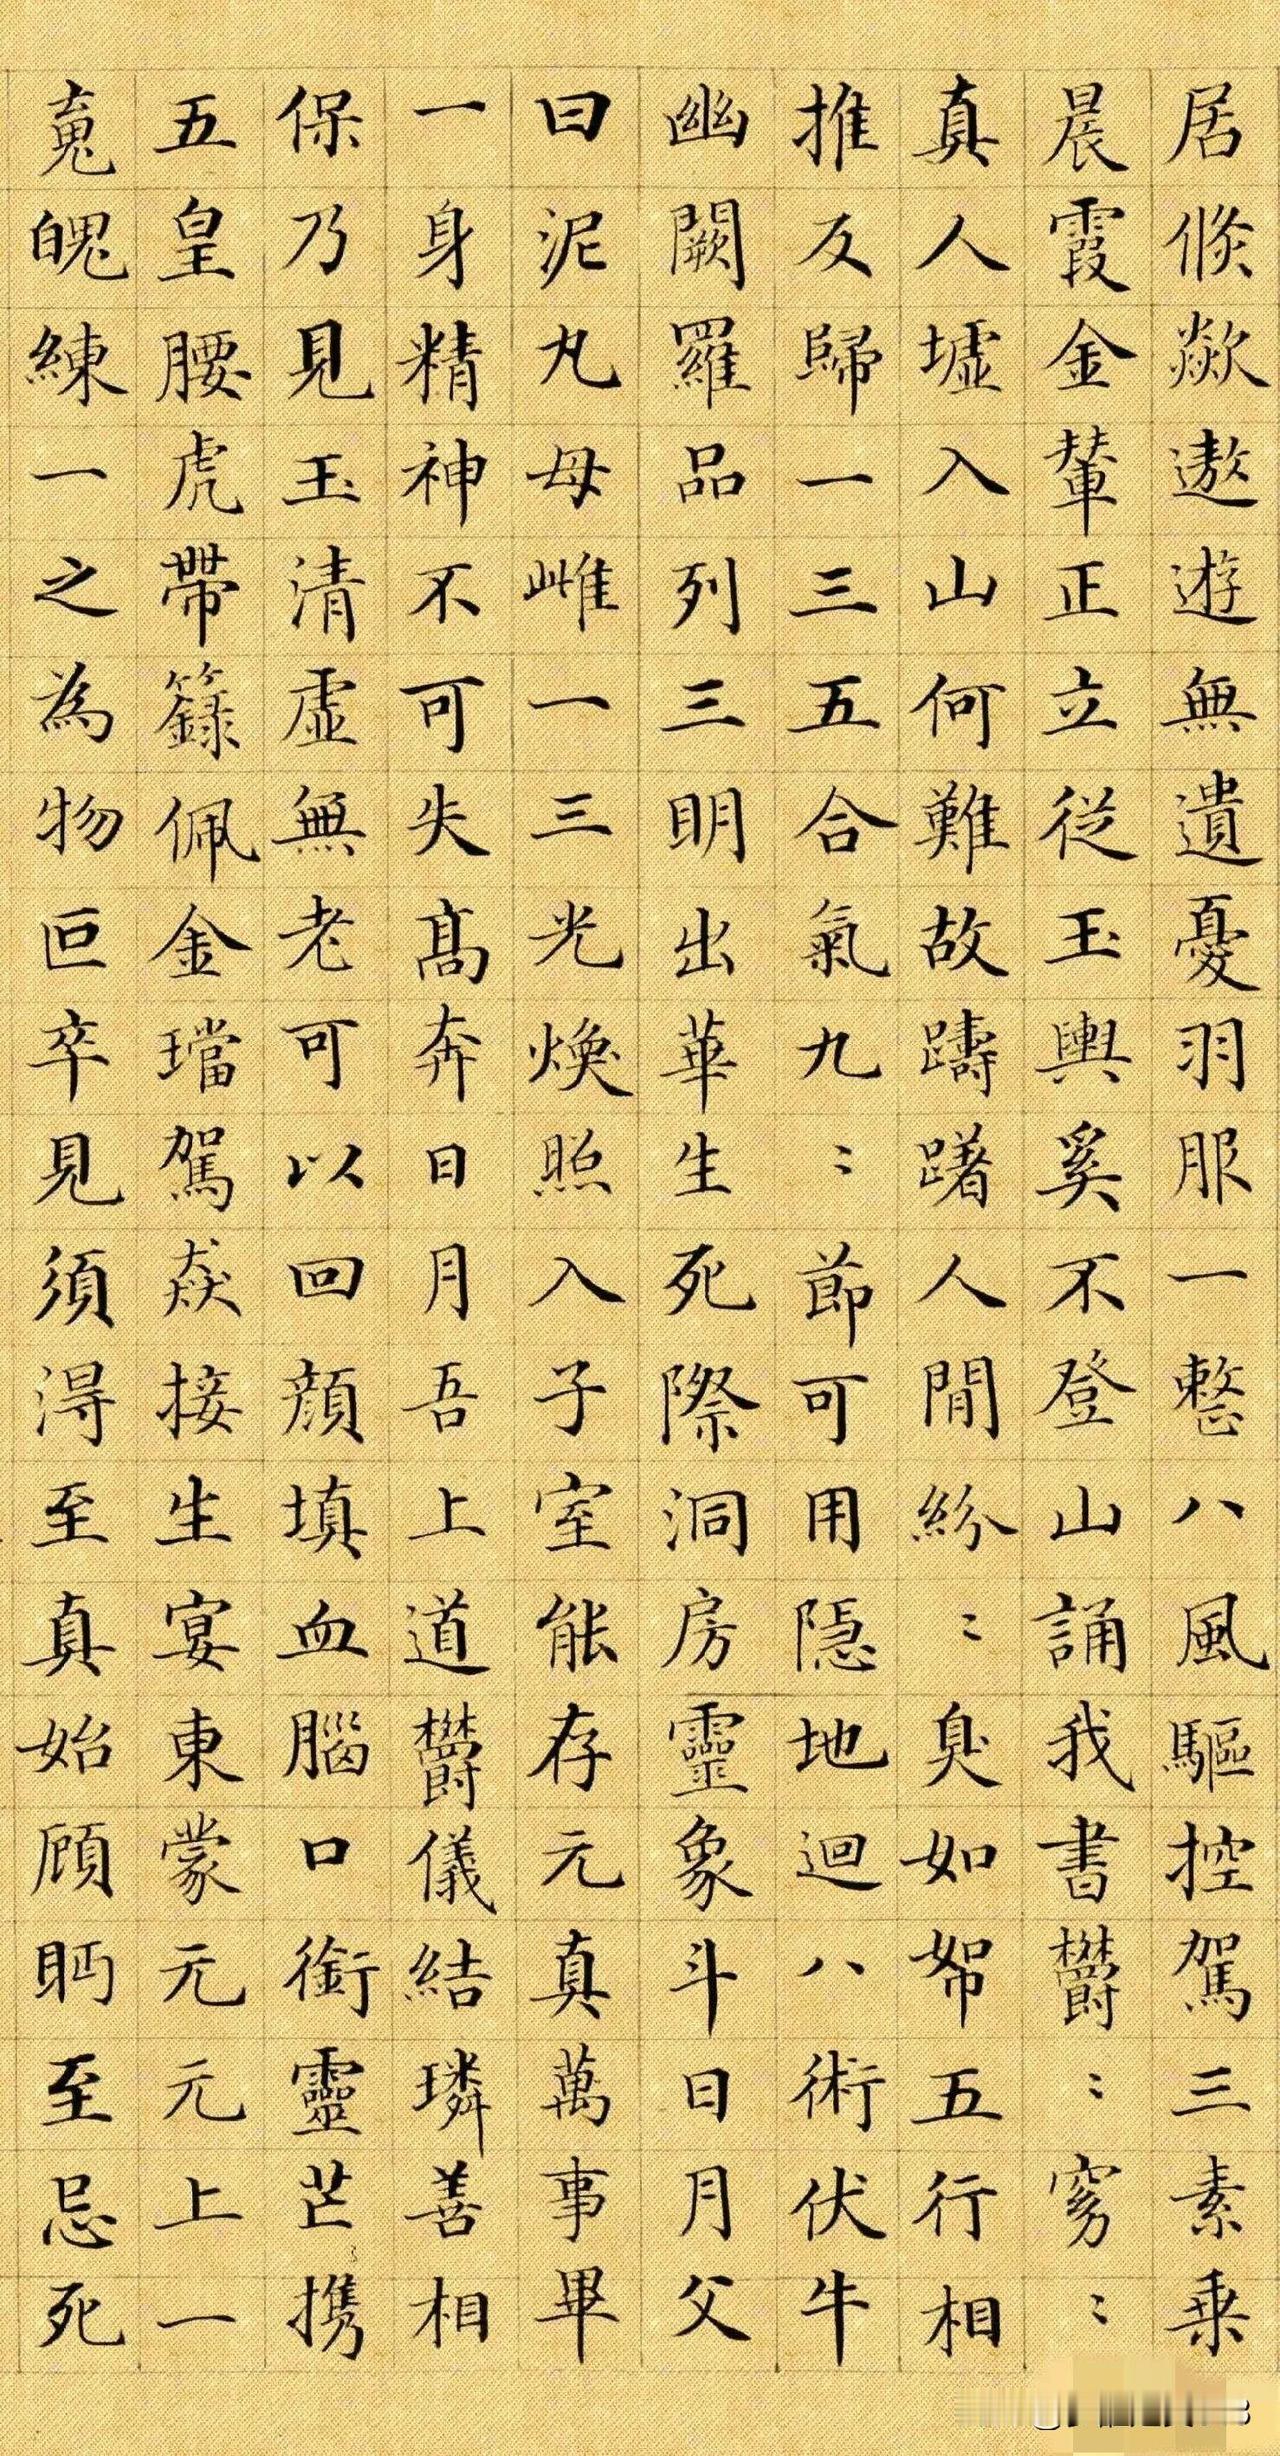 居倏欻遨遊無遺憂羽服一整八風驅控駕三素乗
晨霞金輦正立從玉輿奚不登山誦我書欝〻窈〻
真人墟入山何難故躊躇人間紛〻臭如帤五行相
推反歸一三五合氣九〻節可用隱地迴八術伏牛
幽闕羅品列三明出華生死際洞房靈象斗日月父
曰泥丸母雌一三光煥照入子室能存元真萬事畢
一身精神不可失髙奔日月吾上道欝儀結璘善相
保乃見玉清虛無老可以回顔填血腦口銜靈芒携
五皇腰虎帶籙佩金璫駕焱接生宴東蒙元元上一
䰟魄練一之為物叵卒見須得至真始顧眄至忌死